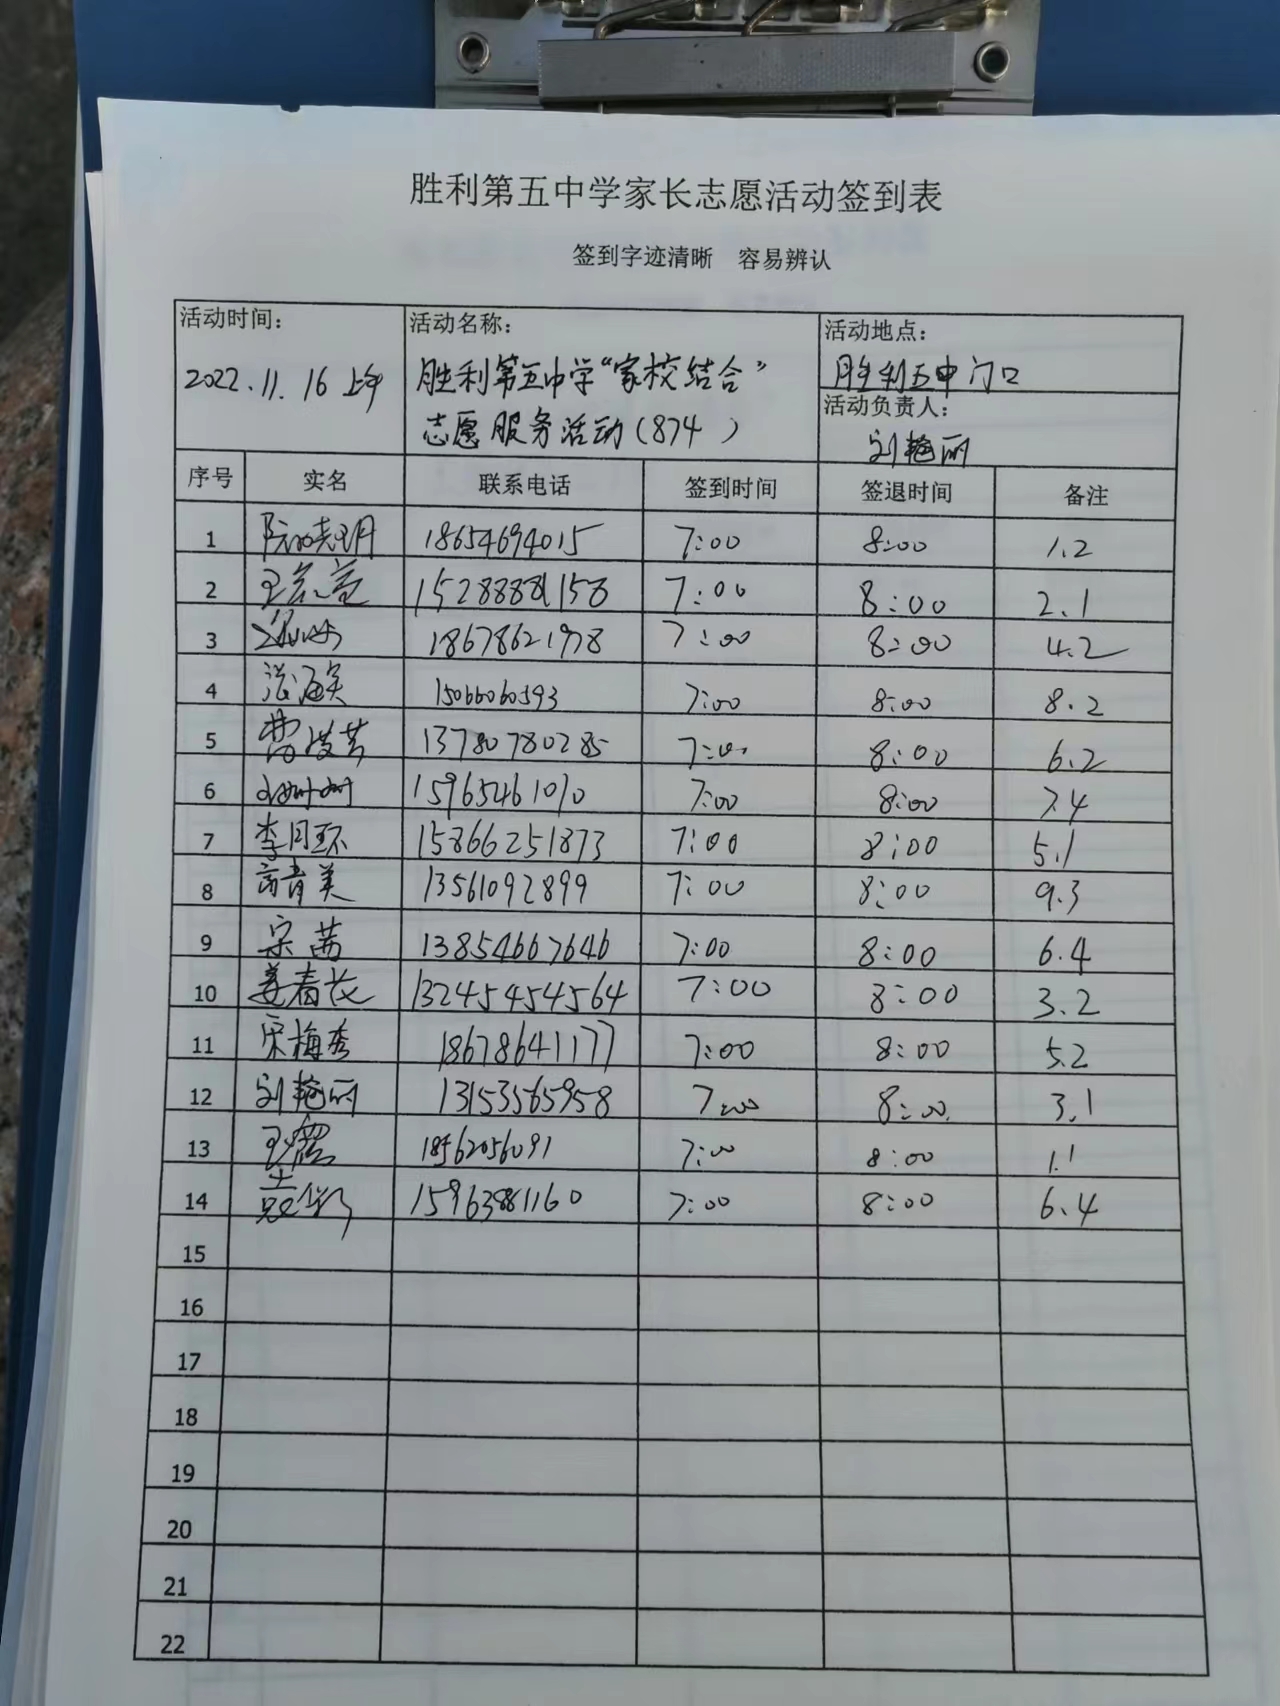 胜利第五中学家长志愿活动签到表
签到字迹清晰 容易辨认
活动时间: 活动名称: 活动地点:
2022.11.16上午 胜利第五中学"家校结合" 胜利五中门口
志愿服务活动(874) 活动负责人:
刘艳丽
序号 实名 联系电话 签到时间 签退时间 备注
1 18654694015 7:00 8:00 1.2
2 7:00 8:00 2.1
3 18678621978 7:00 8:00 4.2
4 15066060593 7:00 8:00 8.2
5 13780780285 7:00 8:00 6.2
6 15965461010 7:00 8:00 7.4
7 李月环 15866251873 7:00 8:00 5.1
8 高青美 13561092899 7:00 8:00 9.3
9 宋茜 13854667646 7:00 8:00 6.4
10 姜春长 13245454564 7:00 8:00 3.2
11 宋梅秀 18678641177 7:00 8:00 5.2
12 刘艳丽 13153565958 7:00 8:00 3.1
13 18562056091 7:00 8:00 1.1
14 15963881160 7:00 8:00 6.4
15
16
17
18
19
20
21
22